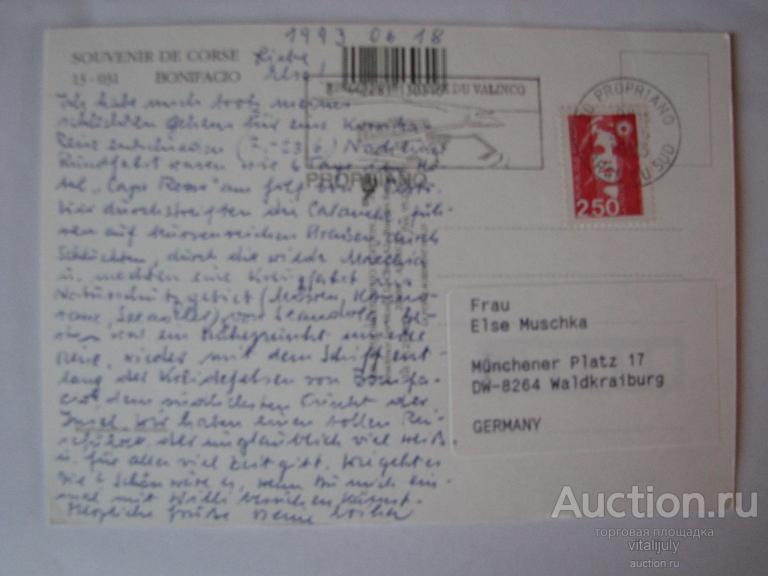 1993 06 18
SOUVENIR DE CORSE
13 - 031 BONIFACIO
Liebe
Else!
Ich habe mich trotz meines
schlechten Gehens für eine Korsika-
Reise entschieden
Rundfahrt waren wir 6 Tage im Ho-
tel „Capo Rosso" am
durchstreiften die Calanche, fuh-
ren auf kurvenreichen Strassen, durch
Schluchten, durch die wilde Macchia
u. machten eine Kreuzfahrt
Naturschutzgebiet (Möwen, Kormo-
rane, Seeadler) von Scandola
war ein Höhepunkt unserer
Reise, wieder mit dem Schiff ent-
lang der Kreidefelsen von Bonifa-
cio, dem südlichsten der
Insel. Wir haben einen tollen Rei-
seführer, der unglaublich viel weiß
u. für alles viel Zeit gibt. Wie geht es
Schön wäre es, wenn Du mich ein-
mal mit Willi besuchen kannst.
Herzliche Grüße Deine
DU VALINCO
PROPRIANO
PROPRIANO
DU SUD
2,50
Frau
Else Muschka
Münchener Platz 17
DW-8264 Waldkraiburg
GERMANY
Auction.ru
торговая площадка
vitalijuly
auction.ru